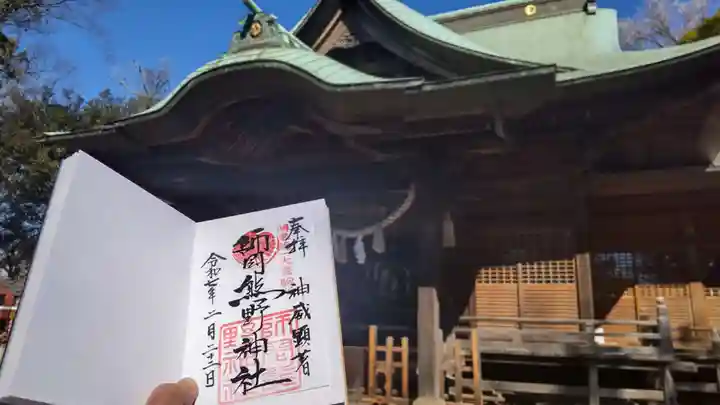 奉拝
神威顕著
師岡熊野神社
令和七年二月二十二日